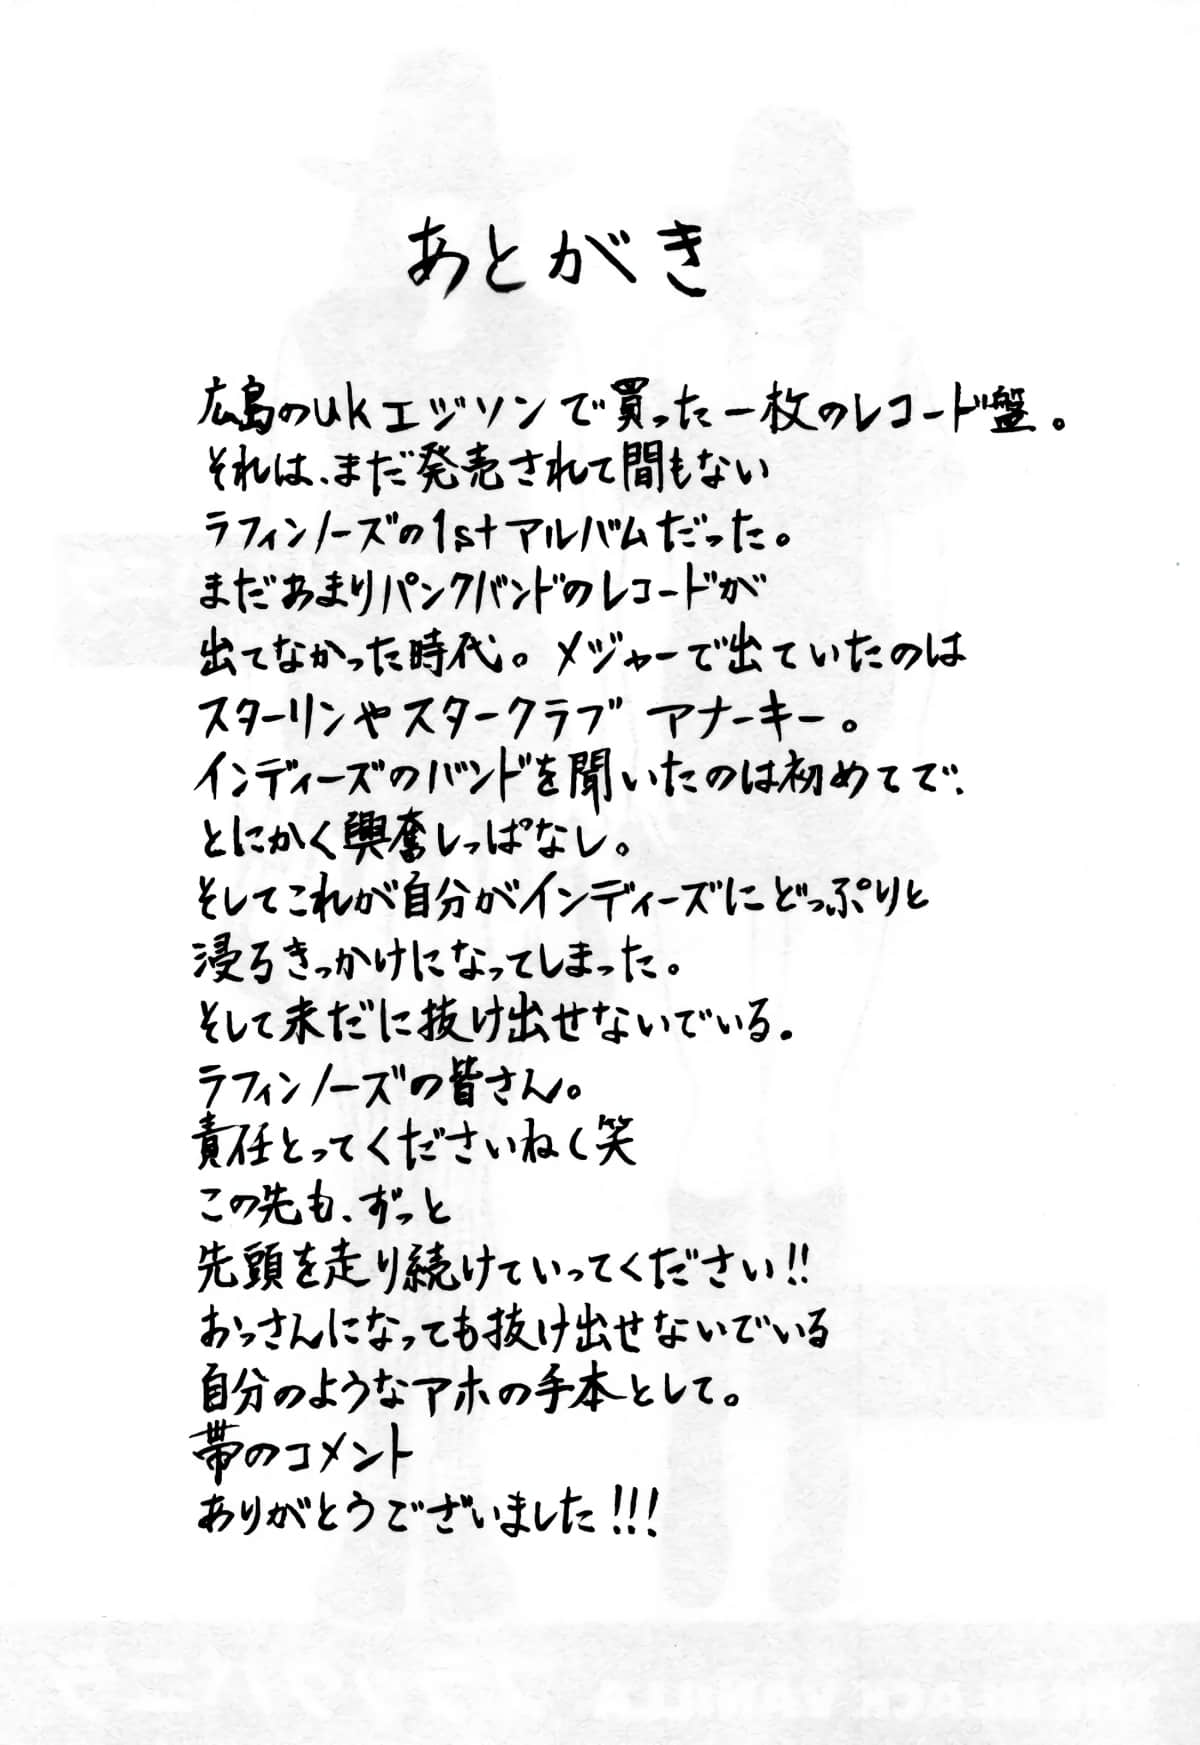 あとがき
広島のukエジソンで買った一枚のレコード盤。
それは、まだ発売されて間もない
ラフィンノーズの1stアルバムだった。
まだあまりパンクバンドのレコードが
出てなかった時代。メジャーで出ていたのは
スターリンやスタークラブ アナーキー。
インディーズのバンドを聞いたのは初めてで、
とにかく興奮しっぱなし。
そしてこれが自分がインディーズにどっぷりと
浸るきっかけになってしまった。
そして未だに抜け出せないでいる。
ラフィンノーズの皆さん。
責任とってくださいね(笑
この先も、ずっと
先頭を走り続けていってください!!
おっさんになっても抜け出せないでいる
自分のようなアホの手本として。
帯のコメント
ありがとうございました!!!